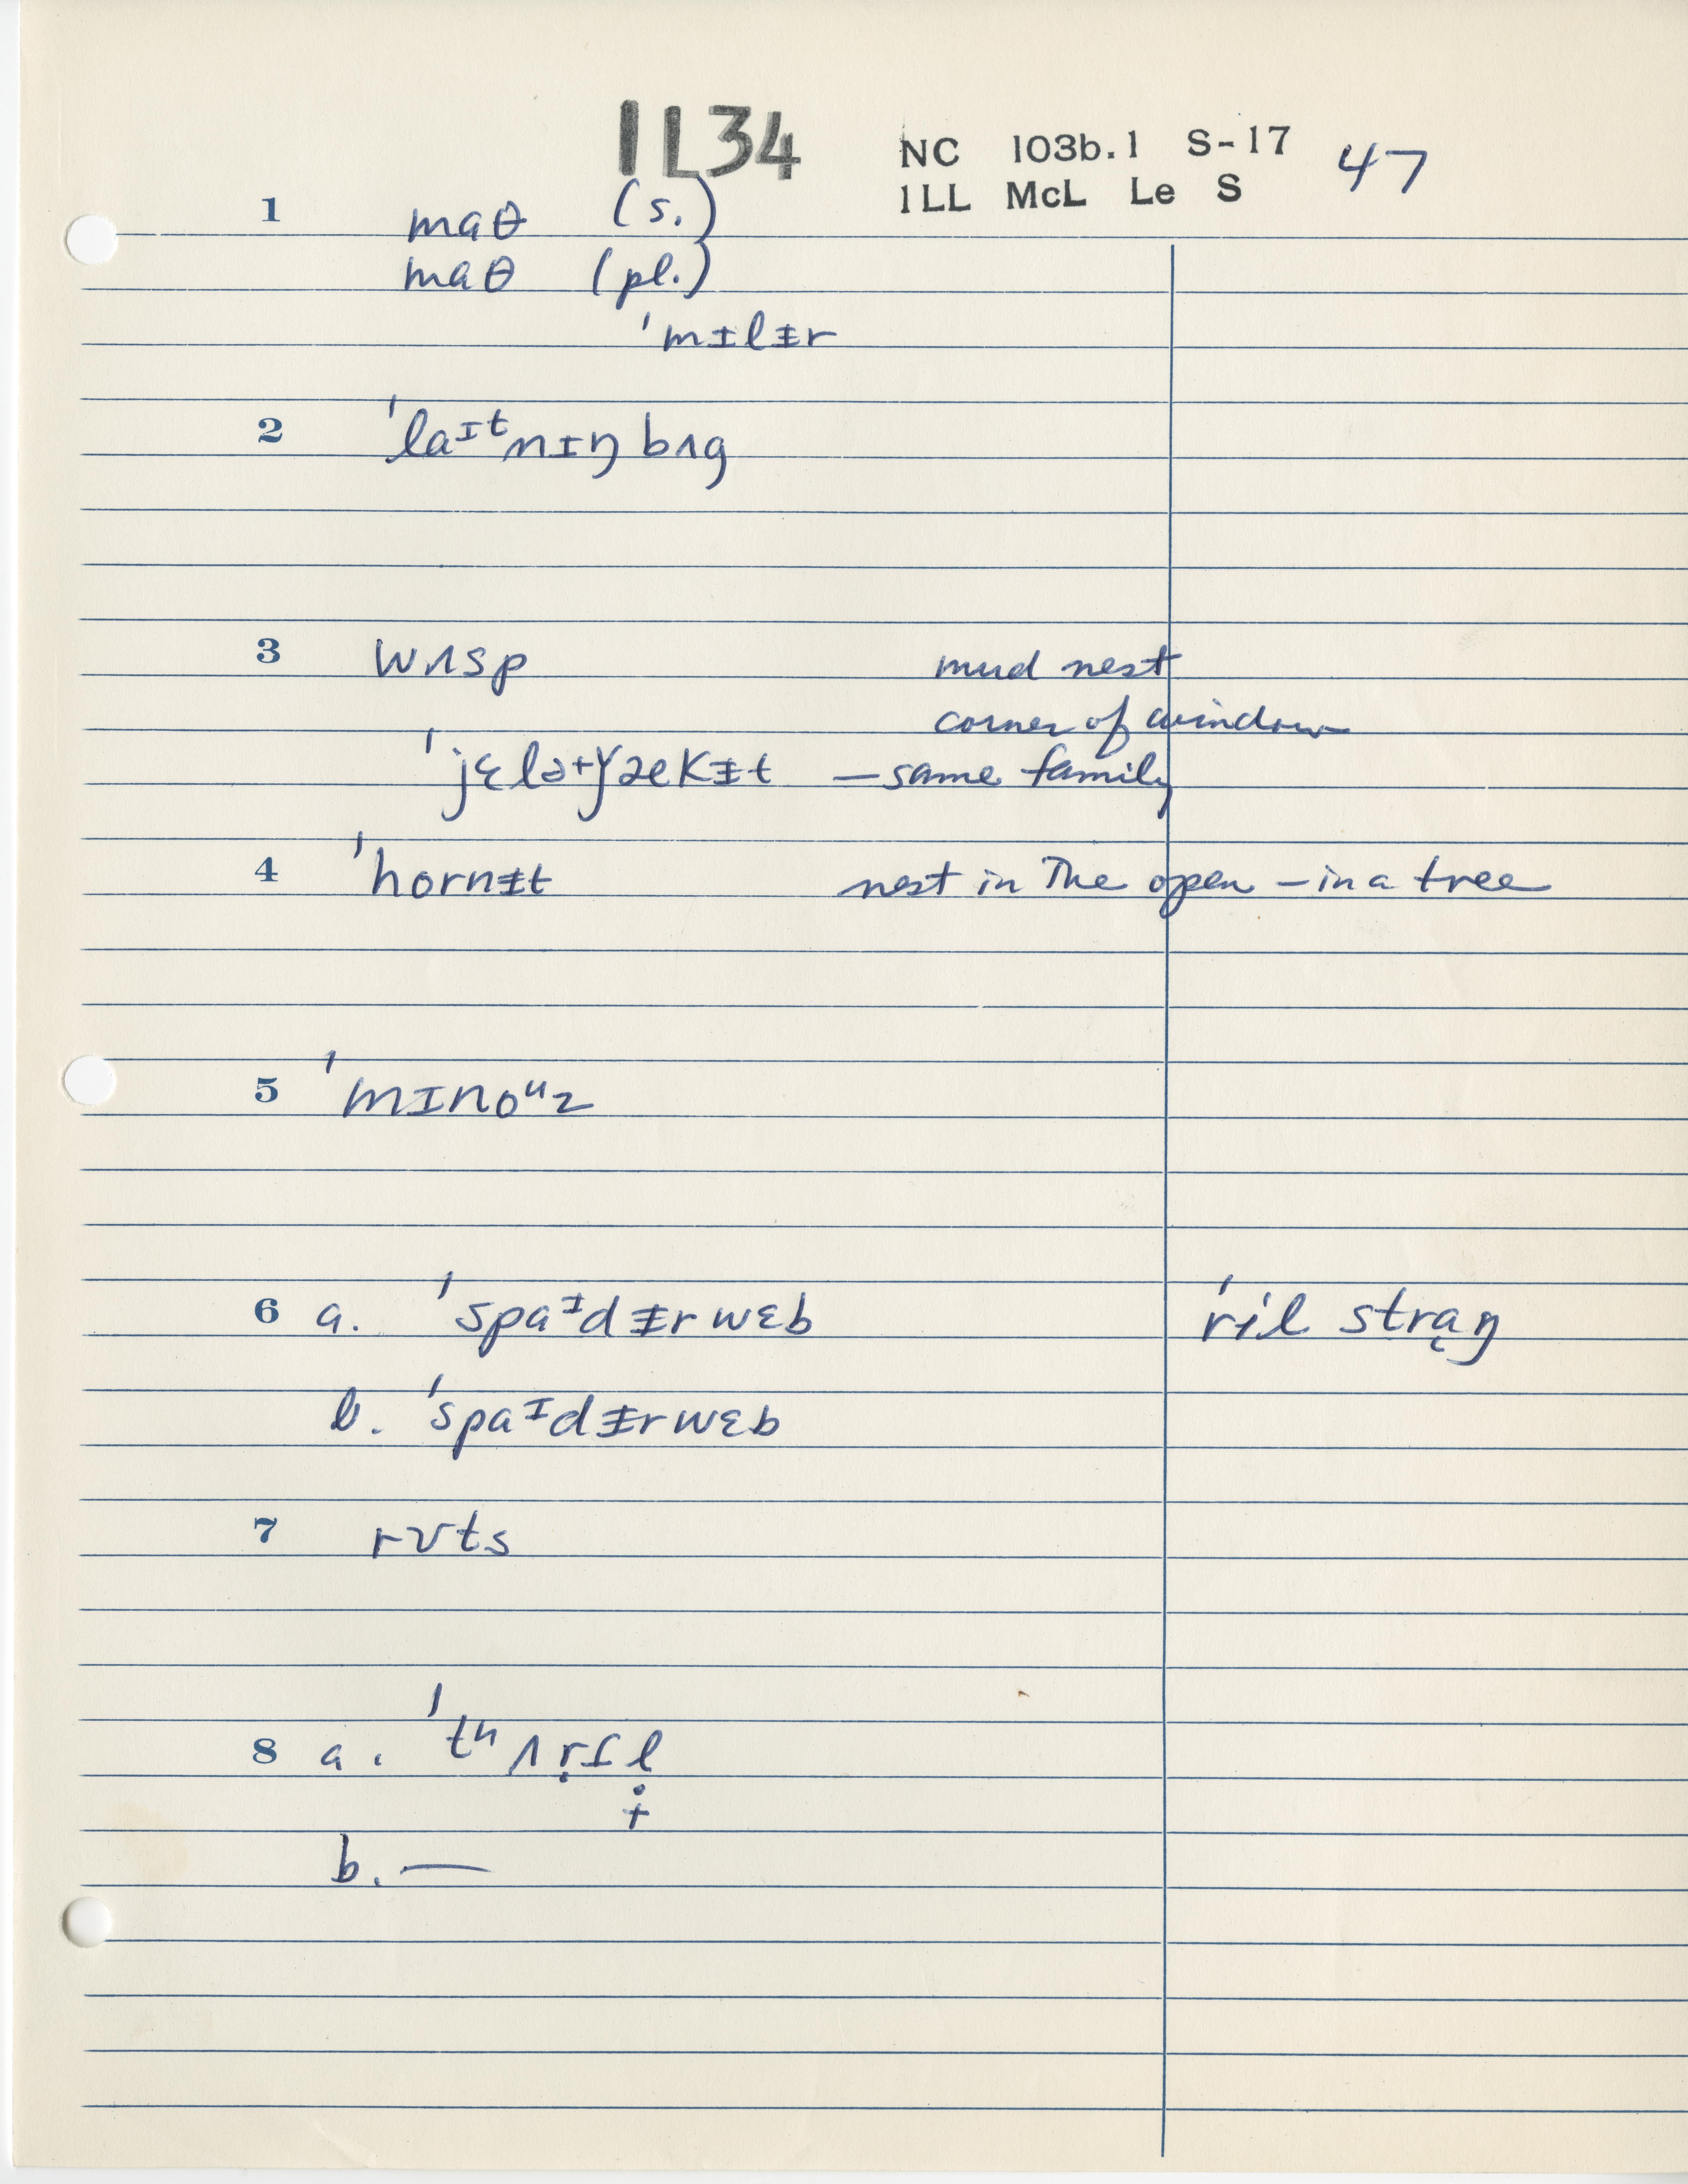 1L34
NC 103b.1 S-17 47
1LL McL Le S
1 maθ (s.)
maθ (pl.)
ˈmᵻlᵻr
2 ˈlaᶦᵗnɪŋ bʌg
3 wʌsp mud nest
corner of window
ˈjɛləɟækᵻt — same family
4 ˈhornᵻt nest in The open – in a tree
5 ˈmɪnoᵘz
6 a. ˈspaᶦdᵻrwɛb ˈril strɑ̨ŋ
b. ˈspaᶦdᵻrwɛb
7 rʊts
8 a. ˈtʰʌṛɪl
b. —